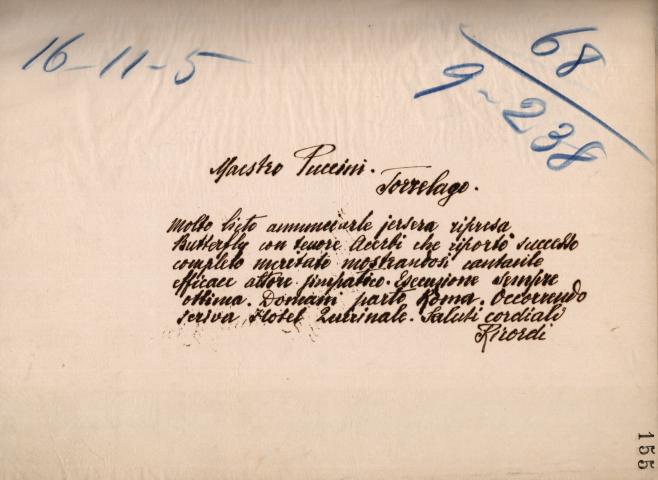 16-11-5
68
9-238
Maestro Puccini.
Torrelago.
Molto lieto annunciarle jersera ripresa
Butterfly con tenore Acerbi che riportò successo
completo meritato mostrandosi cantante
efficace attore simpatico. Esecuzione sempre
ottima. Domani parto Roma. Occorrendo
scriva Hotel Quirinale. Saluti cordiali
Ricordi
155